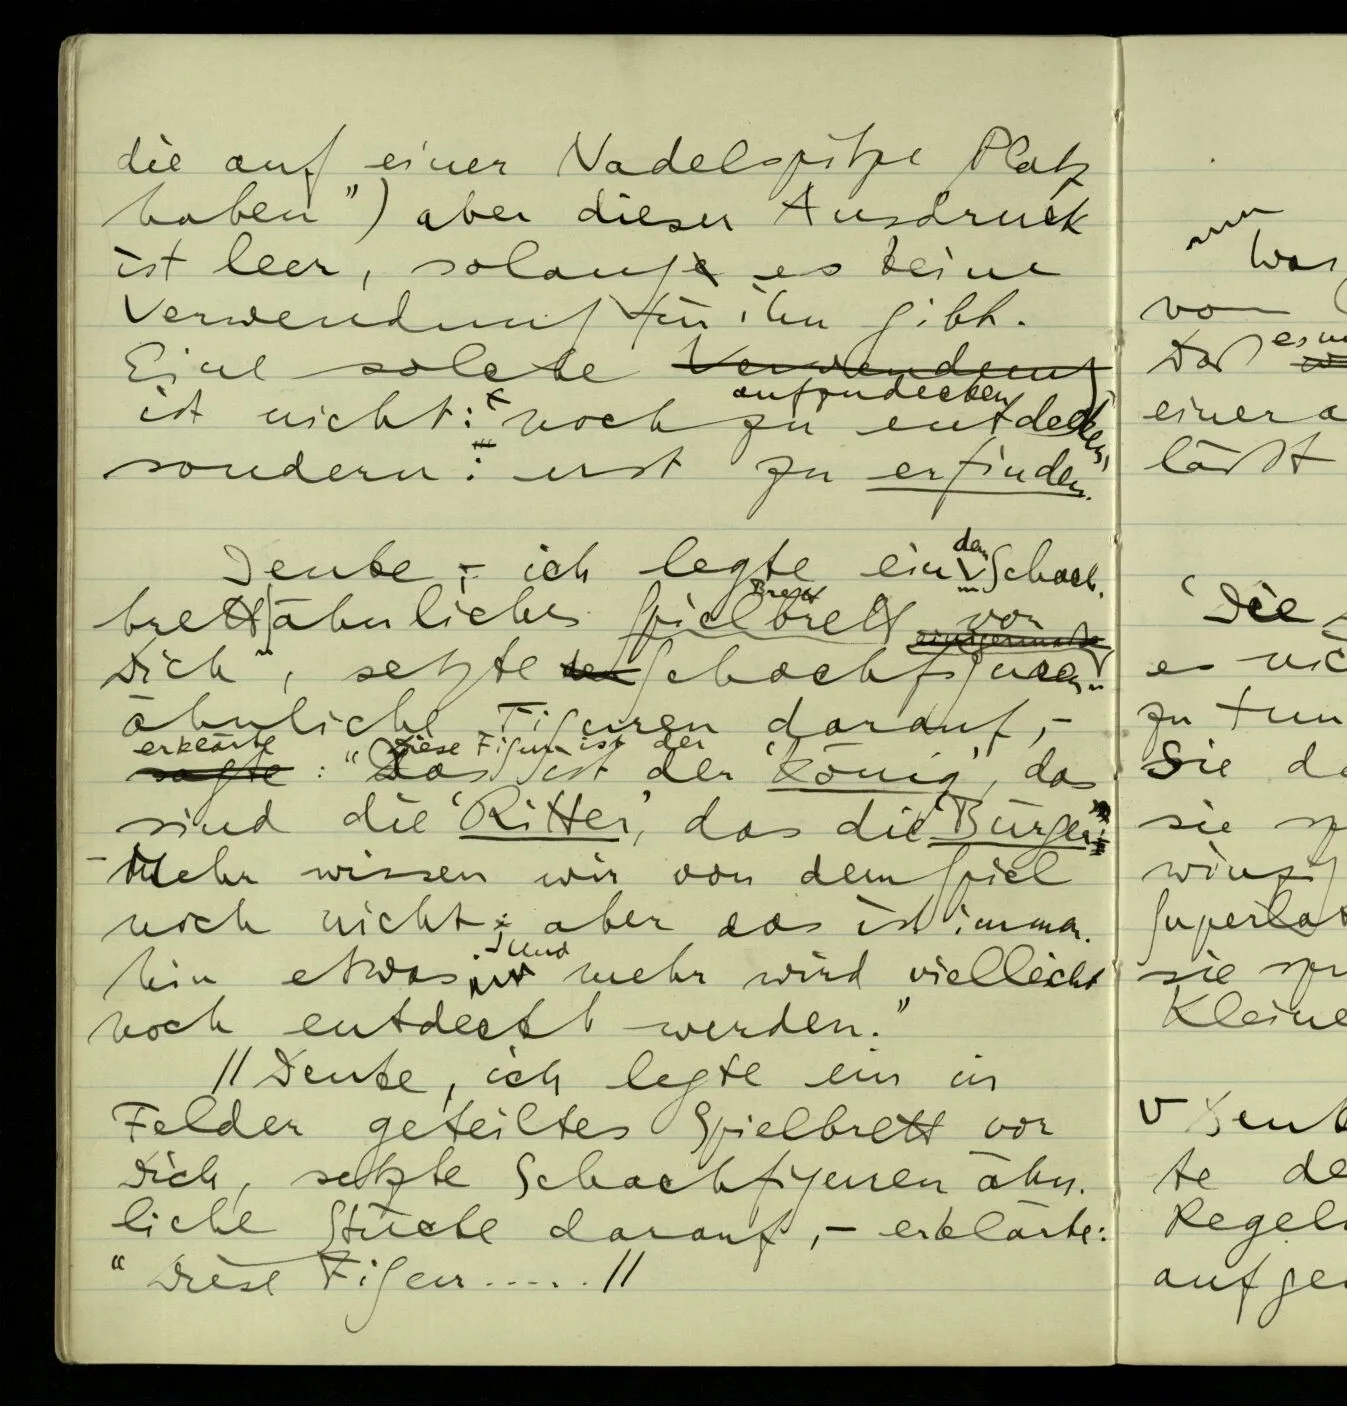 die auf einer Nadelspitze Platz
haben") aber dieser Ausdruck
ist leer, solange es keine
Verwendung für ihn gibt.
Eine solche Verwendung
aufzudecken
ist nicht: noch zu entdecken,
sondern: erst zu erfinden.
Denke, – ich legte ein dem Schach-
Brett
brettähnliches Spielbrett vor
Dich, setzte der Schachfiguren
ähnliche Figuren darauf, –
erklärte Diese Figur ist der
sagte: "Das ist der 'König', das
sind die 'Ritter', das die 'Bürger'.
– Mehr wissen wir von dem Spiel
noch nicht; aber das ist immer-
Und
hin etwas. mehr wird vielleicht
noch entdeckt werden."
// Denke, ich legte ein in
Felder geteiltes Spielbrett vor
Dich, setzte Schachfiguren ähn-
liche Stücke darauf, – erklärte:
"Diese Figur ..... //
von
einer a
läßt
'Die
es nic
zu tun
Sie da
sie sp
winzig
Superlat
sie spr
Kleine
V Denk
te de
Regel
aufge